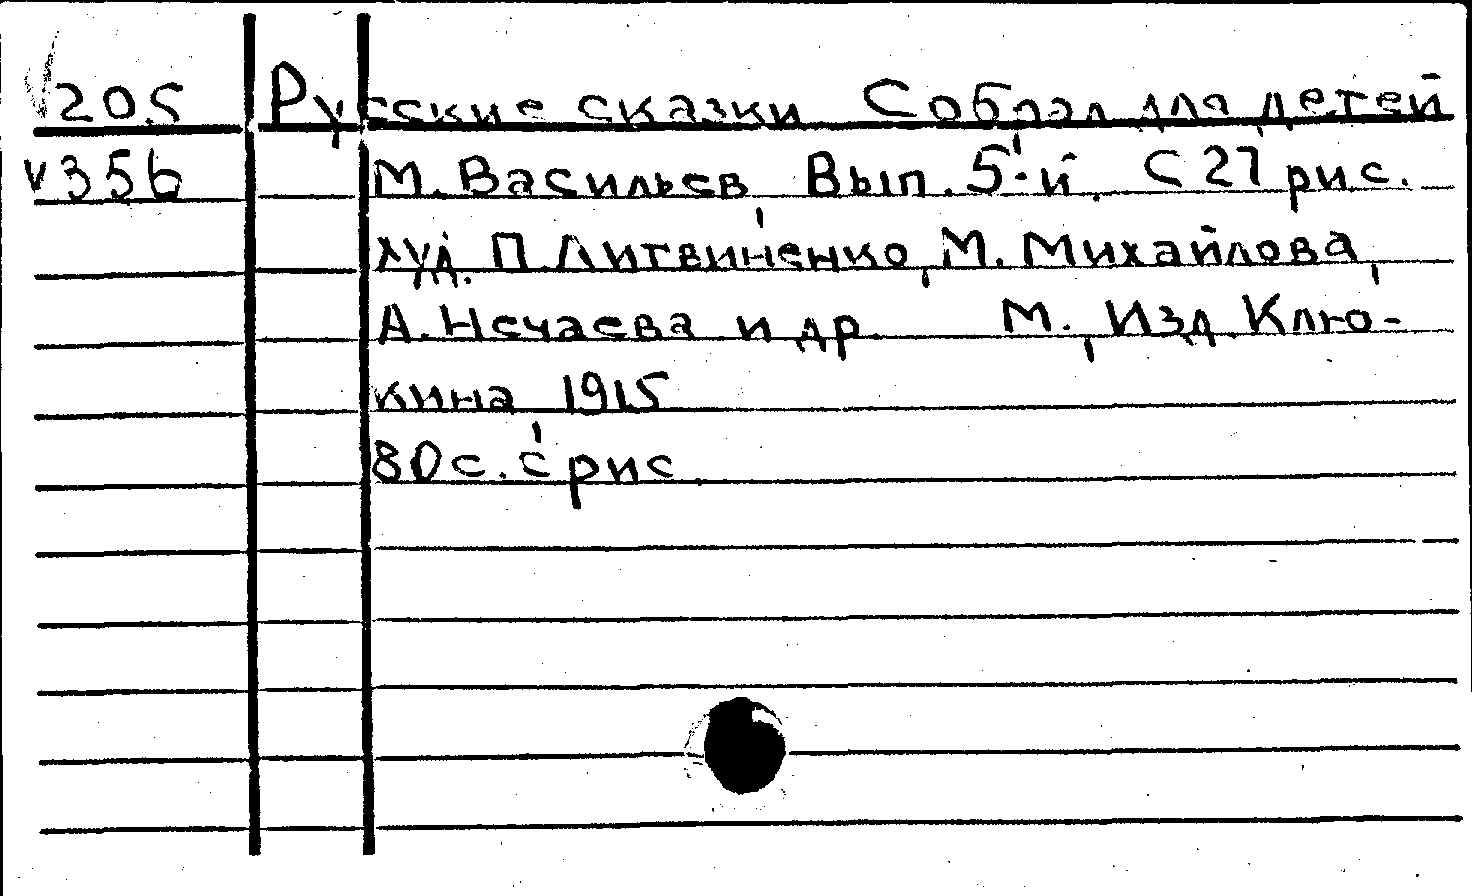 205 Русские сказки Собрал для детей
v356 М. Васильев, Вып. 5-й. С 27 рис.
худ. П. Литвиненко, М. Михайлова,
А. Нечаева и др. М., Изд. Клю-
кина, 1915
80 с. с рис.